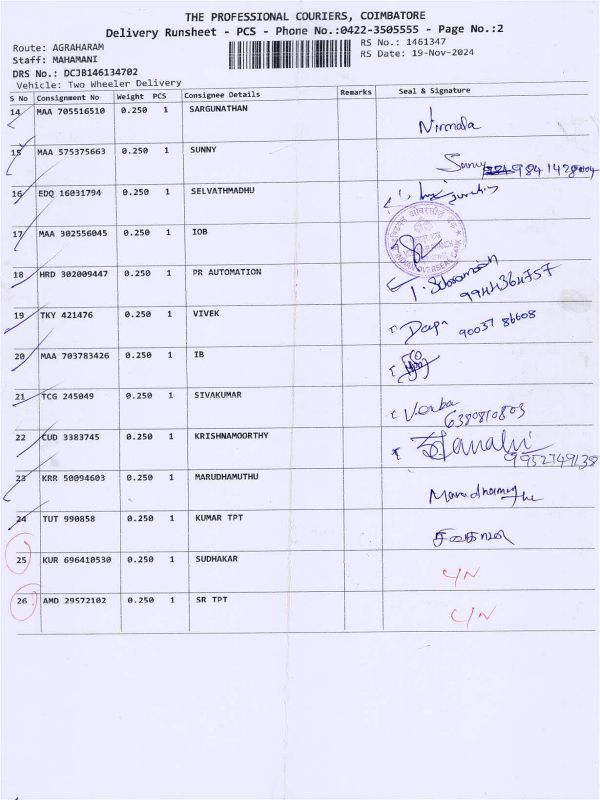 THE PROFESSIONAL COURIERS, COIMBATORE
Delivery Runsheet - PCS - Phone No.:0422-3505555 - Page No.:2
Route: AGRAHARAM
RS No.: 1461347
Staff: MAHAMANI
RS Date: 19-Nov-2024
DRS No.: DCJB146134702
Vehicle: Two Wheeler Delivery
S No Consignment No Weight PCS Consignee Details Remarks Seal & Signature
14 MAA 705516510 0.250 1 SARGUNATHAN Nirmala
15 MAA 575375663 0.250 1 SUNNY Sunny
16 EDQ 16031794 0.250 1 SELVATHMADHU
17 MAA 302556045 0.250 1 IOB
18 HRD 302009447 0.250 1 PR AUTOMATION 9944364757
19 TKY 421476 0.250 1 VIVEK 90037 86608
20 MAA 703783426 0.250 1 IB
21 TCG 245049 0.250 1 SIVAKUMAR 6380810803
22 CUD 3383745 0.250 1 KRISHNAMOORTHY 9952749138
23 KRR 50094603 0.250 1 MARUDHAMUTHU
24 TUT 990858 0.250 1 KUMAR TPT
25 KUR 696410530 0.250 1 SUDHAKAR C/N
26 AMD 29572102 0.250 1 SR TPT C/N